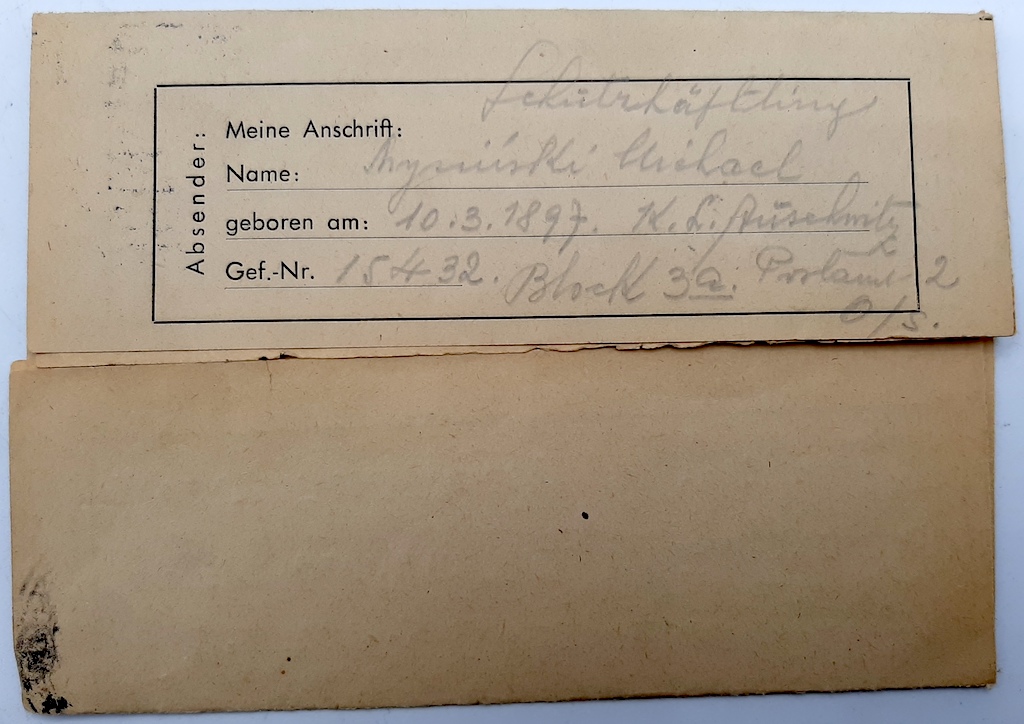 Schutzhäftling
Absender:
Meine Anschrift:
Name: Michael
geboren am: 10.3.1897. K. L. Auschwitz
Gef.-Nr. 15432. Block 3a. Postamt 2
O/S.